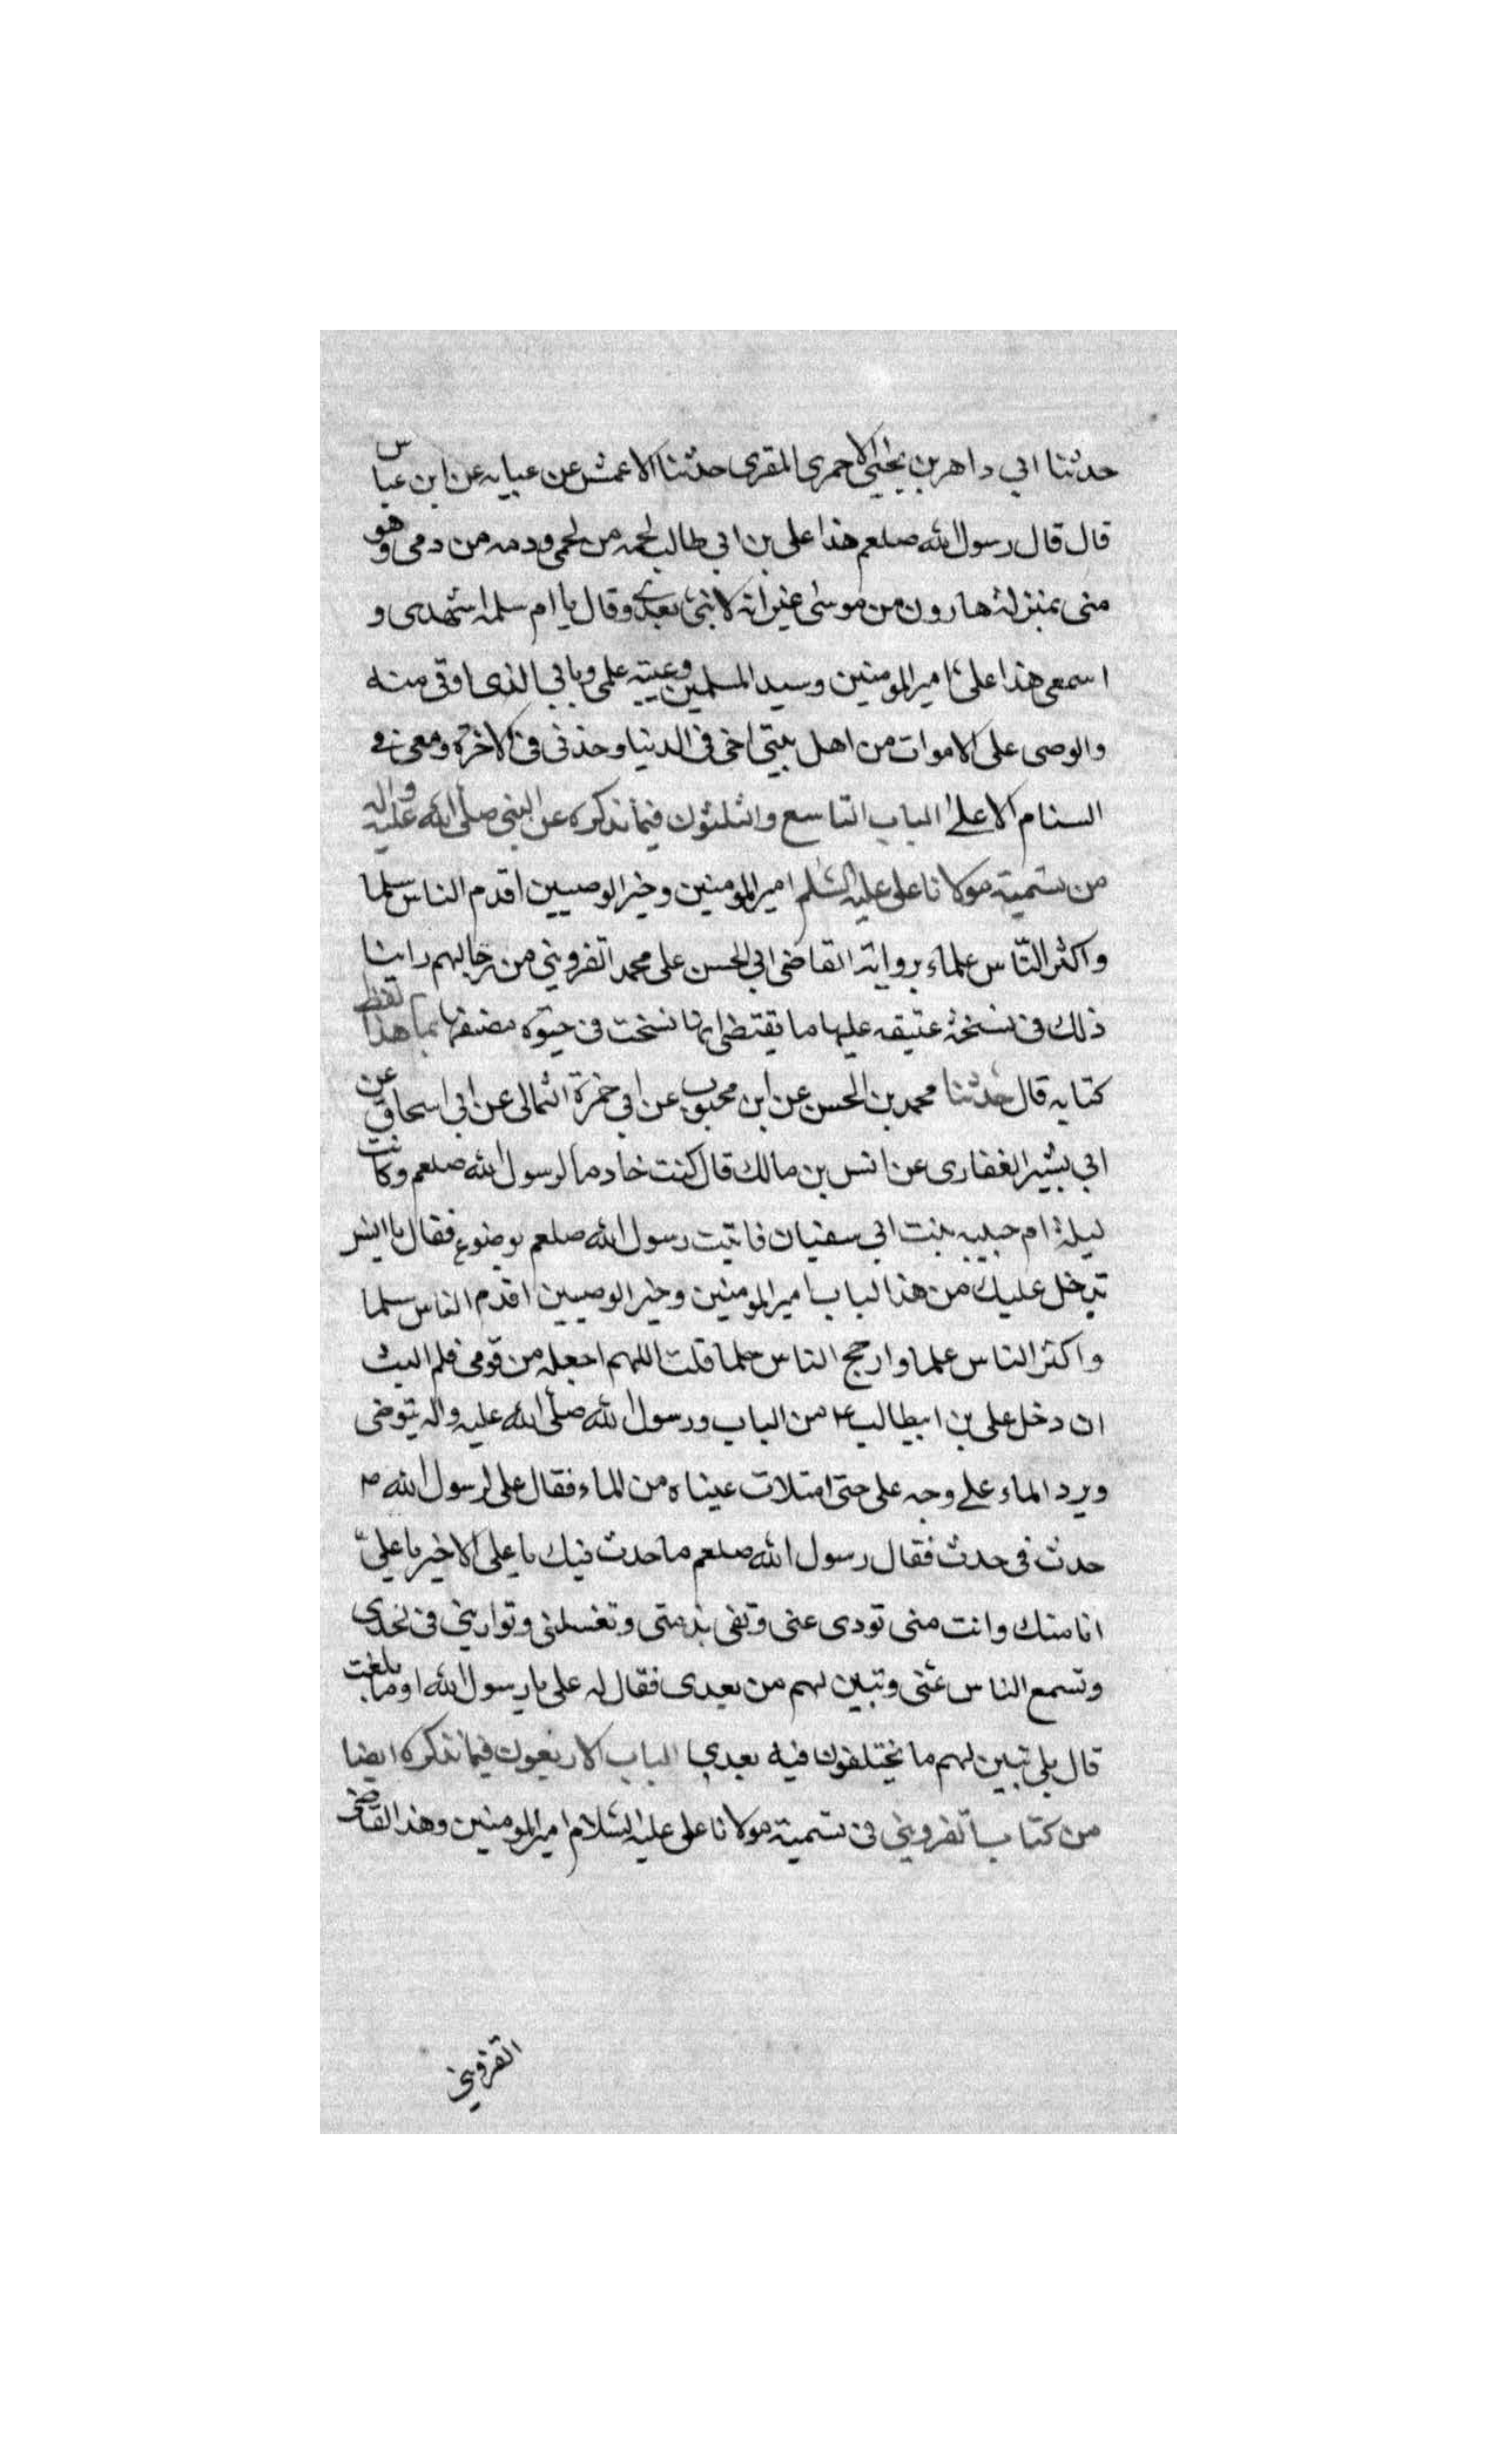 حدثنا ابي داهر بن يحيى الاحمرى المقرى حدثنا الاعمش عن عبايه عن ابن عباس
قال قال رسول الله صلعم هذا على بن ابي طالب لحمه من لحمى ودمه من دمى وهو
منى بمنزلة هارون من موسى غير انه لا نبى بعدى وقال يا ام سلمه اشهدى و
اسمعى هذا على امير المومنين وسيد المسلمين وعيبته علمى وبابي الذى اوتى منه
والوصى على الاموات من اهل بيتى اخى فى الدنيا وخدنى فى الاخرة ومعى فى
السنام الاعلى الباب التاسع والثلثون فيما نذكره عن النبي صلى الله عليه واله
من تسمية مولانا على عليه السلم امير المومنين وخير الوصيين اقدم الناس سلما
واكثر النّاس علماء برواية القاضى ابي الحسن على محمد القزويني من رجالهم راينا
ذلك فى نسخة عتيقه عليها ما يقتضى انها نسخت فى حيوة مصنفها بما هذا لفظ
كتابه قال حدثنا محمد بن الحسن عن ابن محبوب عن ابى حمزة الثمالى عن ابى اسحاق عن
ابي بشير الغفارى عن انس بن مالك قال كنت خادما لرسول الله صلعم وكانت
ليلة ام حبيبه بنت ابى سفيان فاتيت رسول الله صلعم بوضوء فقال يا انس
تدخل عليك من هذا الباب امير المومنين وخير الوصيين اقدم الناس سلما
واكثر الناس علما وارجح الناس حلما قلت اللهم اجعله من قومى فلم البث
ان دخل على بن ابيطالب ع من الباب ورسول الله صلى الله عليه واله يتوضى
ويرد الماء على وجه على حتى امتلات عيناه من الماء فقال على لرسول الله ص
حدث فى حدث فقال رسول الله صلعم ما حدث فيك يا على الا خير يا علىّ
انا منك وانت منى تودى عنى وتفى بذمتى وتغسلنى وتوارينى فى لحدى
وتسمع الناس عنى وتبين لهم من بعدى فقال له على يا رسول الله اوما بلغت
قال بلى تبين لهم ما يختلفون فيه بعدى الباب الاربعون فيما نذكره ايضا
من كتاب القزويني فى تسمية مولانا على عليه السلام امير المومنين وهذا القاضى
القزويني